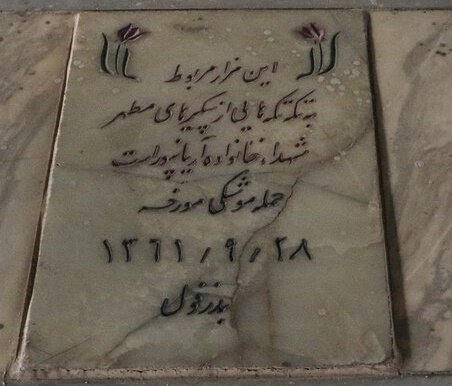 این مزار مربوط
به تکه تکه هایی از پیکرهای مطهر
شهداء خانواده آریانپور است
حمله موشکی مورخه
۱۳۶۱/۹/۲۸
بدزفول